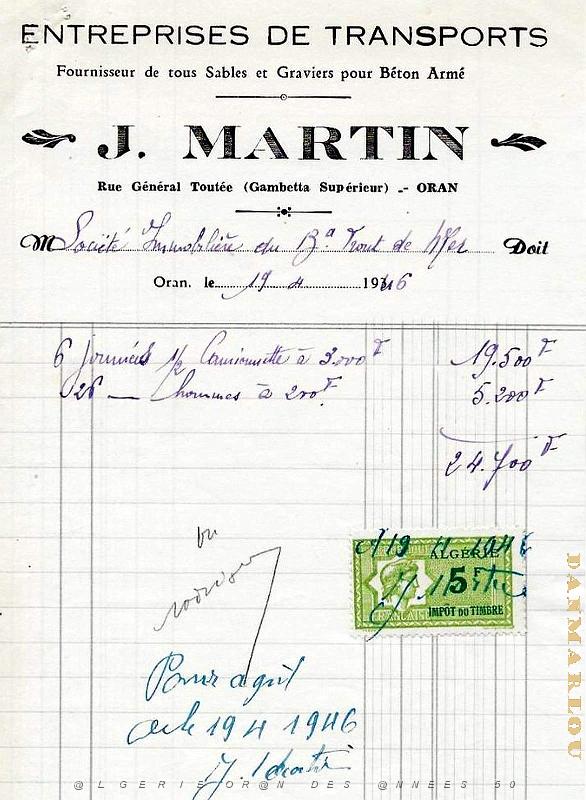 ENTREPRISES DE TRANSPORTS
Fournisseur de tous Sables et Graviers pour Béton Armé
J. MARTIN
Rue Général Toutée (Gambetta Supérieur) -- ORAN
M Société Immobilière du Bd Front de Mer Doit
Oran, le 19 4 1946
6 journées 1/2 Camionnette à 3.000 F 19.500 F
26 — hommes à 200 F. 5.200 F
24.700 F
vu
ALGÉRIE
5F
IMPÔT DU TIMBRE
Pour aquit
le 19 4 1946
J. Martin
DANMARLOU
@LGERIE OR@N DES @NNEES 50